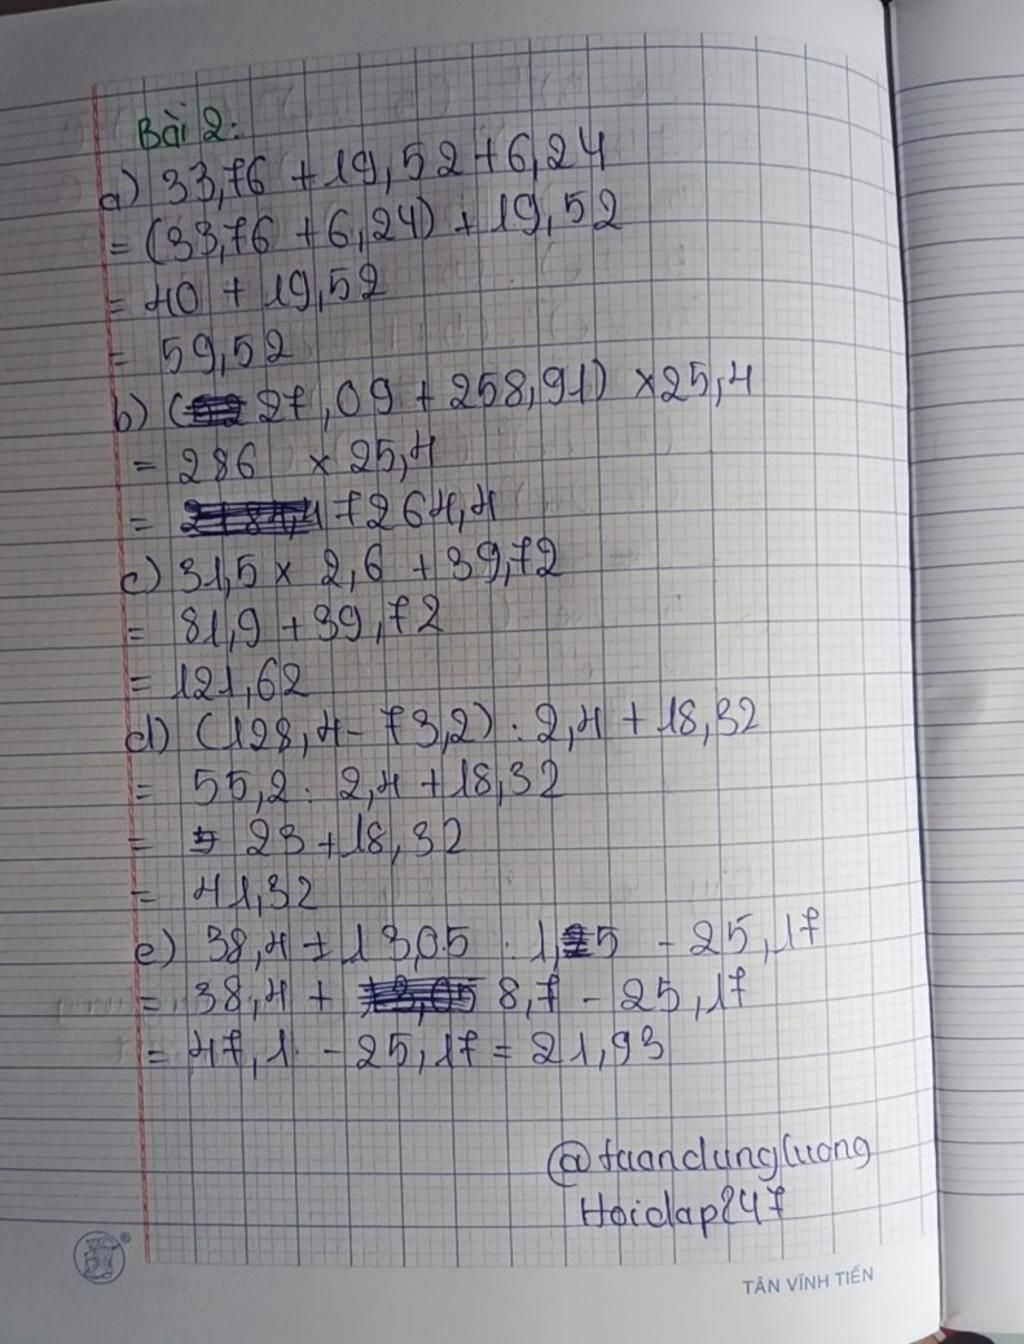 Bài 2:
a) 33,76 + 19,52 + 6,24
= (33,76 + 6,24) + 19,52
= 40 + 19,52
= 59,52
b) (27,09 + 258,91) × 25,4
= 286 × 25,4
= 7264,4
c) 31,5 × 2,6 + 39,72
= 81,9 + 39,72
= 121,62
d) (128,4 - 73,2) : 2,4 + 18,32
= 55,2 : 2,4 + 18,32
= 23 + 18,32
= 41,32
e) 38,4 + 13,05 : 1,5 - 25,17
= 38,4 + 8,7 - 25,17
= 47,1 - 25,17 = 21,93
@tuandungluong
Hoidap247
TÂN VĨNH TIẾN